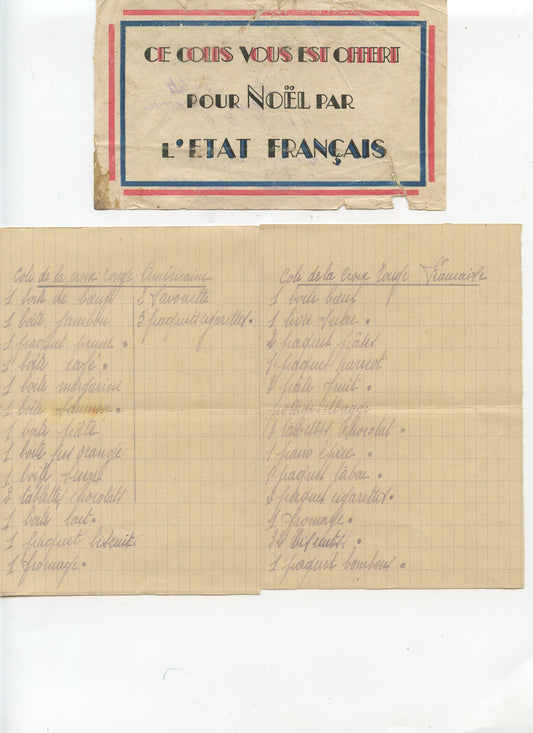 CE COLIS VOUS EST OFFERT
POUR NOËL PAR
L'ETAT FRANÇAIS
Coli de la croix rouge Américaine
1 boite de bœuf
1 boite jambon
1 paquet prune
1 boite café
1 boite margarine
1 boite saumon
1 boite pâté
1 boite jus orange
1 boite sucre
2 tablettes chocolats
1 boite lait
1 paquet biscuit
1 fromage
2 Savonette
5 paquets cigarettes
Coli de la Croix Rouge Francaise
1 boite bœuf
1 livre sucre
2 paquet pâtes
1 paquet haricot
3 pâte fruit
13 tablettes chocolat
1 pain épice
1 paquet tabac
2 paquet cigarettes
1 fromage
32 biscuits
1 paquet bonbons